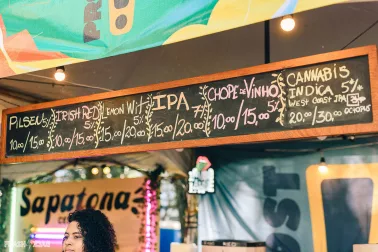 PILSEN 5%
10,00/15,00
IRISH RED
5%
10,00/15,00
LEMON WIT
5%
15,00/20,00
IPA
7%
15,00/20,00
CHOPE DE VINHO
5%
10,00/15,00
CANNABIS
INDICA 5%
WEST COAST IPA
20,00/30,00
Sapatona